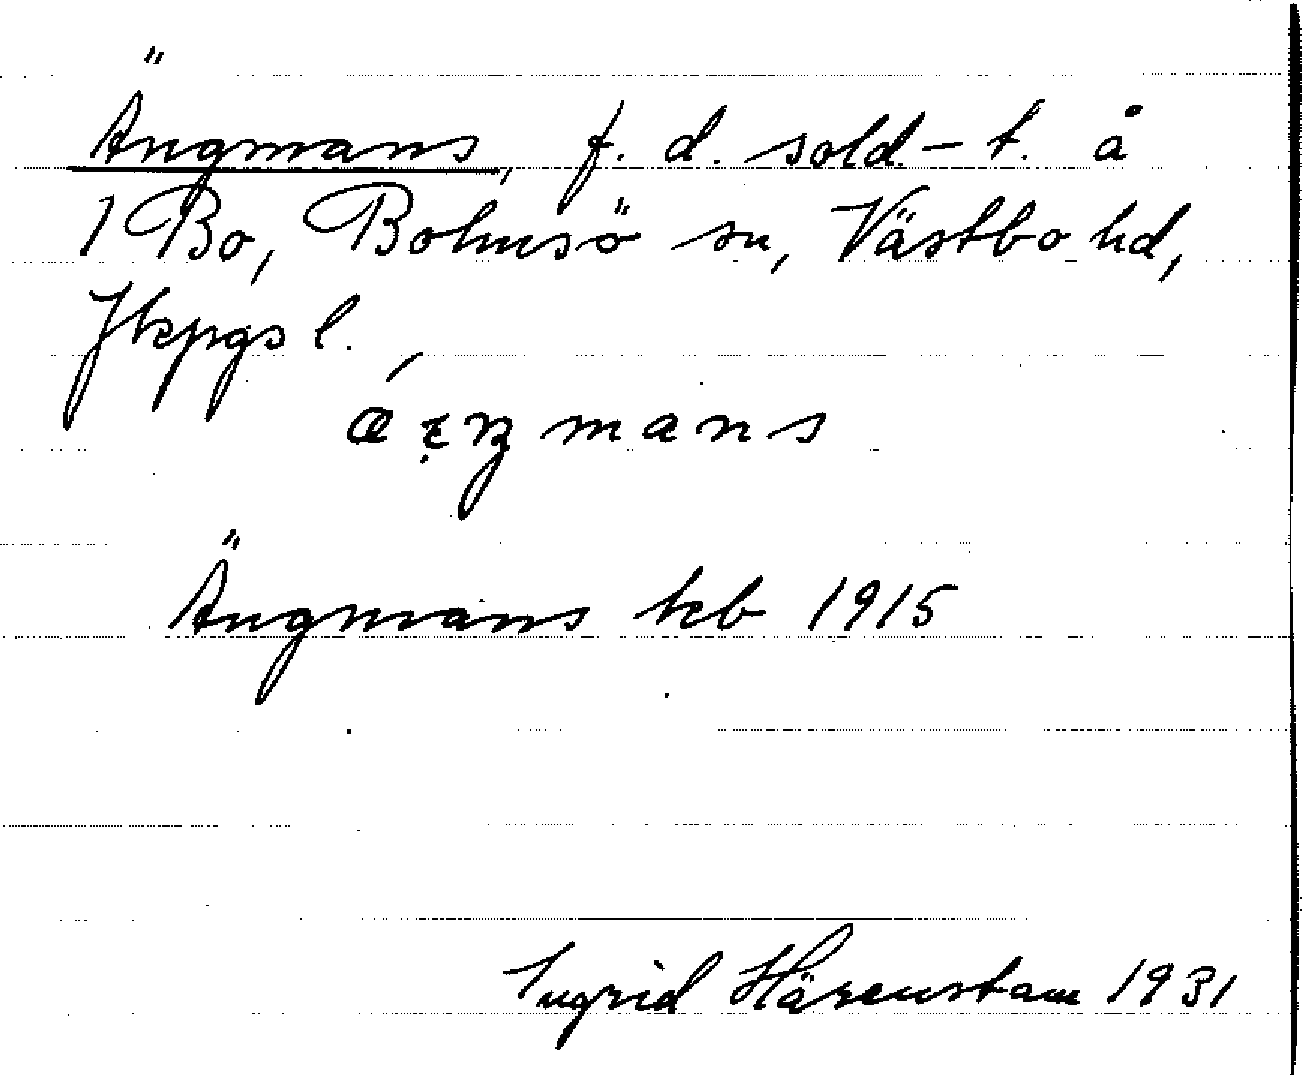 Ängmans, f. d. sold.-t. å
1 Bo, Bolmsö sn, Västbo hd,
Jkpgs l.
mans
Ängmans kb 1915
Ingrid Härenstam 1931